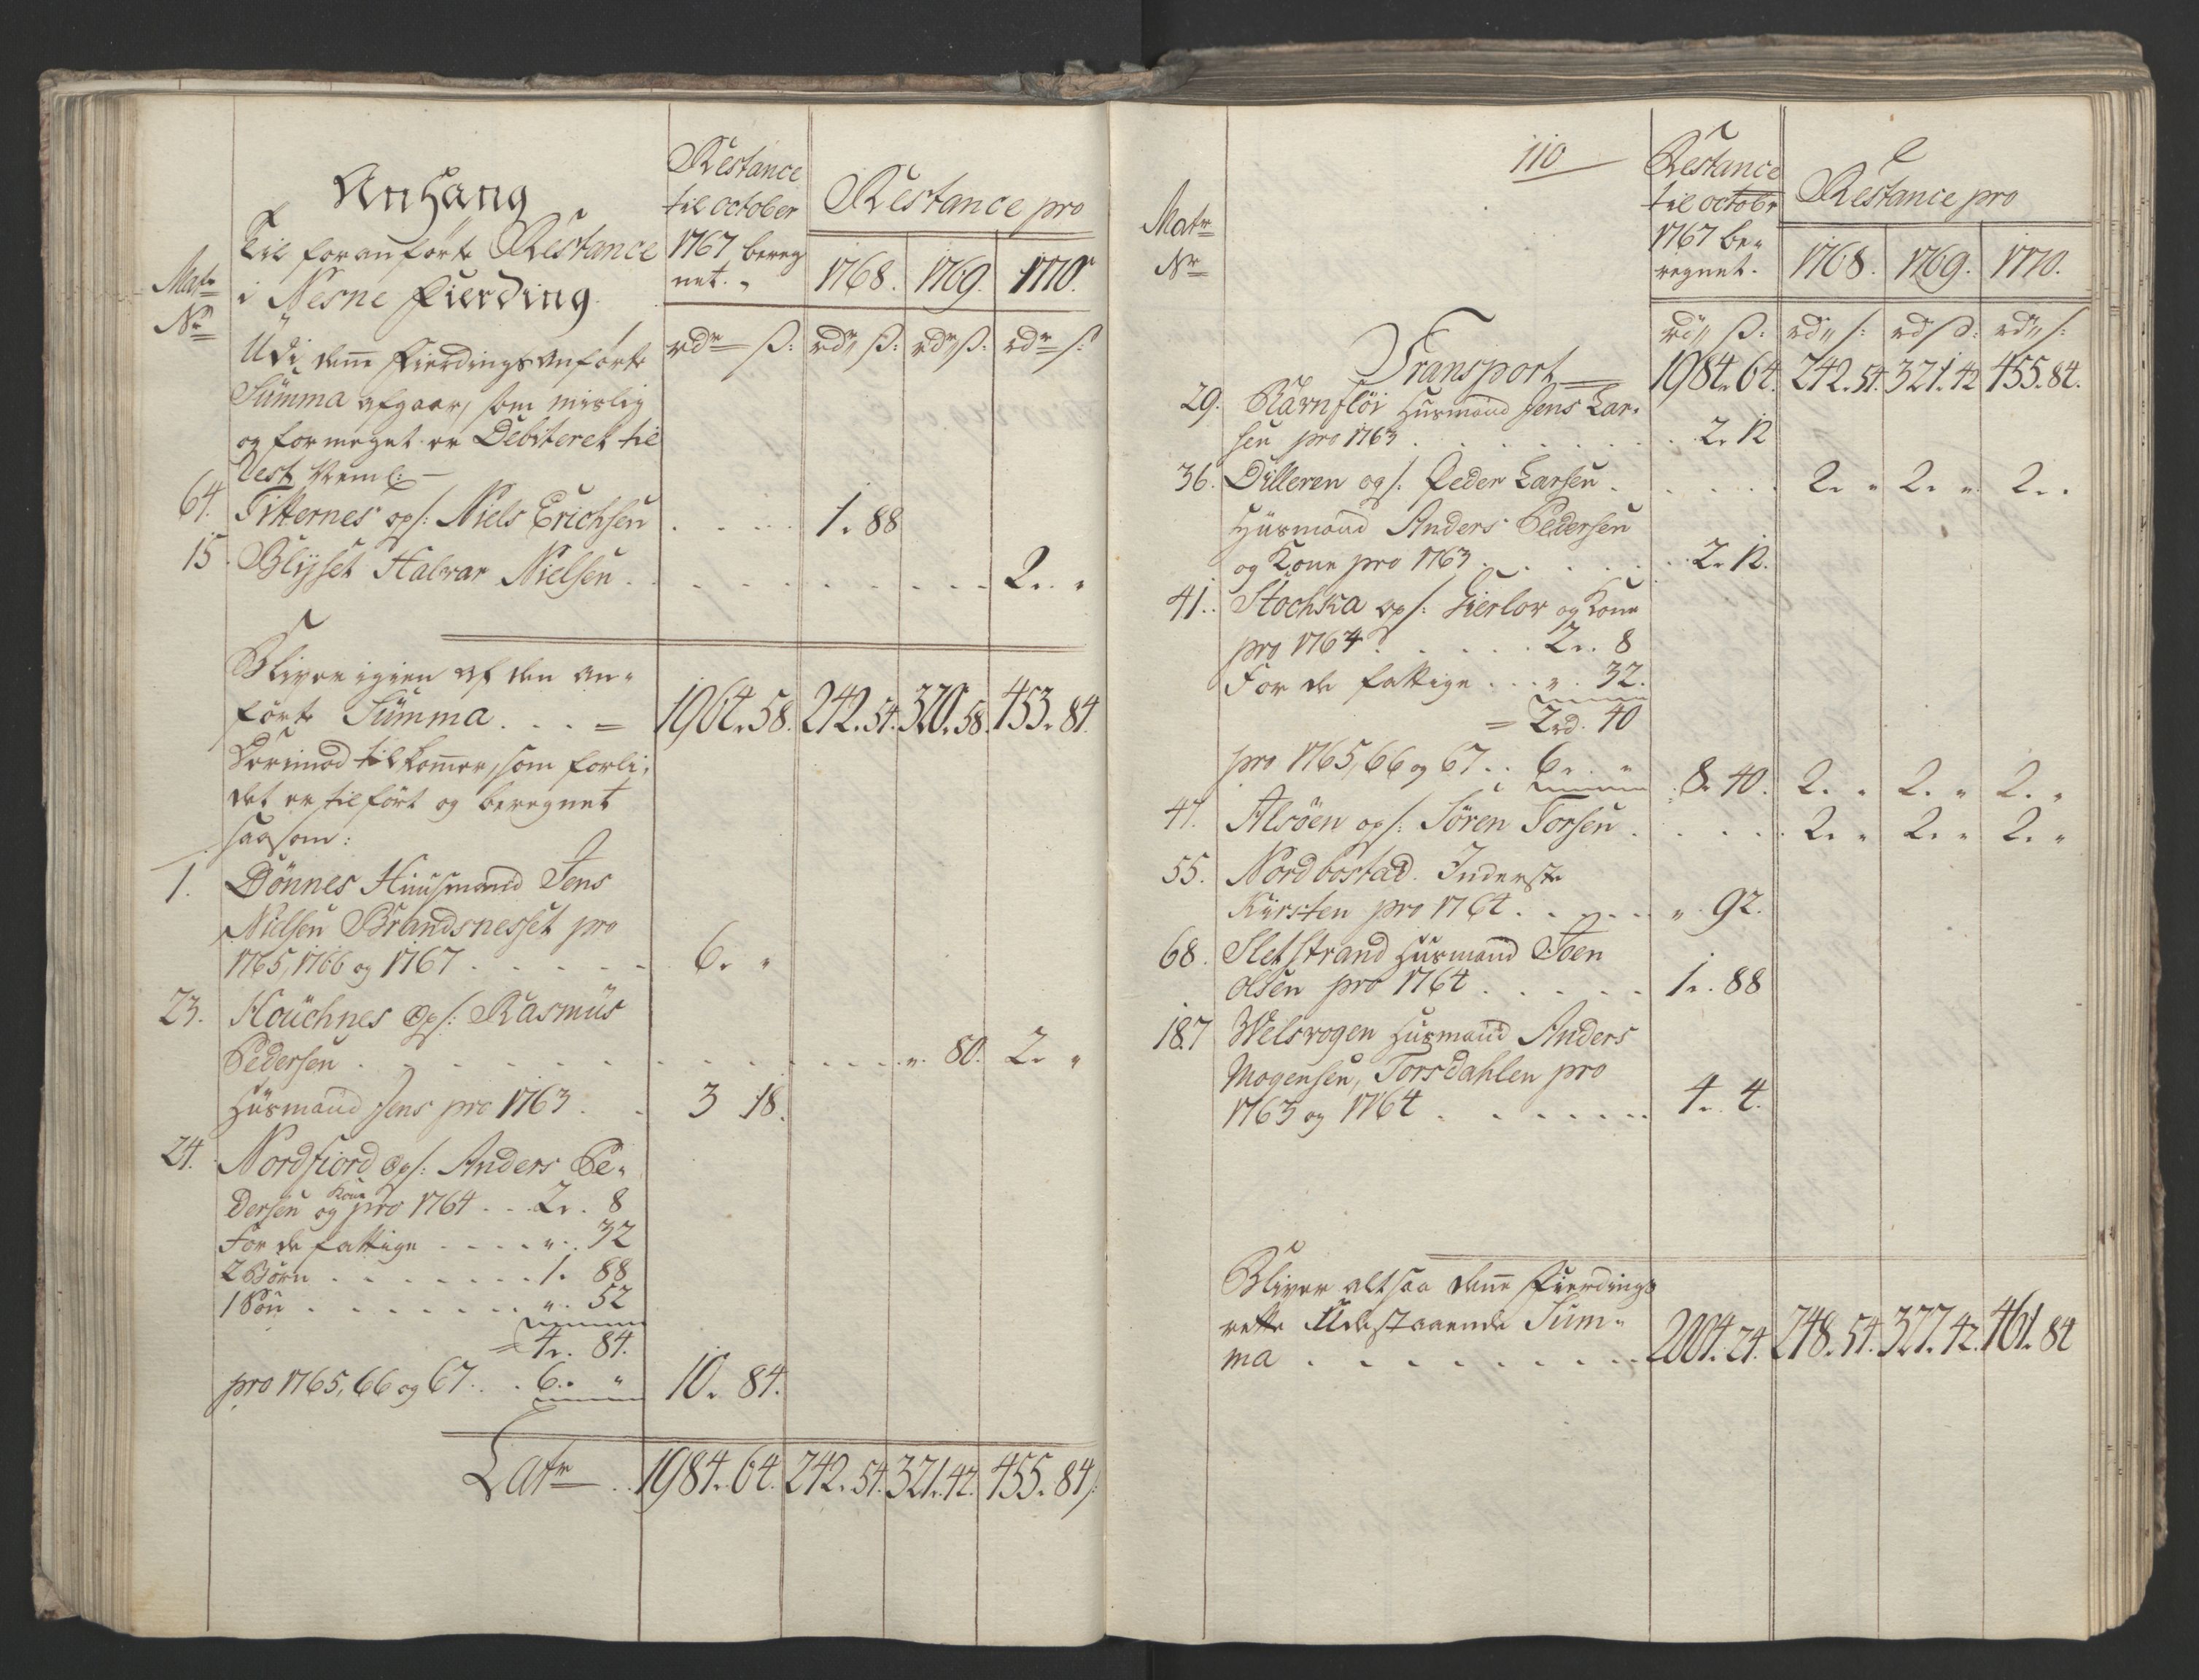 Anhang
Til foranførte Restance
i Nesne Fierding
Matr
Nr
Restance
til october
1767 bereg
net.
Restance pro
1768. 1769. 1770.
rdr ß: rdr ß: rdr ß: rdr ß:
Udi denne Fierdings anførte
Summa afgaar, som mislig
og formeget er Debiteret til
Rest Neml:
64. Titternes ops: Niels Erichsen . . . . 1. 88
15. Blijset Halvar Nielsen . . . . . 2. "
Bliver igien af den an-
førte Summa . . . = 1964. 58. 242. 54. 320. 58. 453. 84.
Derimod tilkommer, som forli-
det er tilført og beregnet
saasom:
1. Dønnes Huusmand Jens
Nielsen Brandsnesset pro
1765, 1766 og 1767 . . . . . 6. "
23. Houchnes Ops: Rasmus
Pedersen . . . . . . . ". 80. 2. "
Husmand Jens pro 1763 . . 3 18.
24. Nordfiord Ops: Anders Pe-
dersen og Kone pro 1764 . . 2. 8
For de fattige . . . . ". 32
2 Børn . . . . . . . 1. 88
1 Søn . . . . . . . ". 52
= 4. 84.
pro 1765, 66 og 67 . . . 6. " 10. 84.
Latr . . 1984. 64. 242. 54. 321. 42. 455. 84.
110
Matr
Nr
Restance
til octobr
1767 be-
regnet.
Restance pro
1768. 1769. 1770.
rdr ß: rdr ß: rd ß: rdr ß:
Transport 1984. 64. 242. 54. 321. 42 455. 84.
29. Ravnfløi Husmand Jens Lar-
sen pro 1763 . . . . . . . 2. 12
36. Dilleren ops: Peder Larsen . . . . . 2. " 2. " 2. .
Husmand Anders Pedersen
og Kone pro 1763 . . . . . . 2. 12.
41. Stochka ops: Gierlov og Kone
pro 1764 . . . . . 2. 8
For de fattige . . . ". 32.
= 2rd. 40
pro 1765, 66 og 67 . . 6. " 8. 40. 2. " 2. " 2. "
47. Alsøen ops: Søren Torsen . . . . . 2. " 2. " 2. "
55. Nordbostad. Inderste
Kirsten pro 1764 . . . . . ". 92.
68. Sletstrand Husmand Joen
Olsen pro 1764 . . . . . 1. 88
187 Welsvogen Husmand Anders
Mogensen, Torsdahlen pro
1763 og 1764 . . . . . . . 4. 4.
Bliver altsaa denne Fierdings
rette Udestaaende Sum-
ma . . . . . . . . . 2004. 24. 248. 54. 327. 42. 461. 84